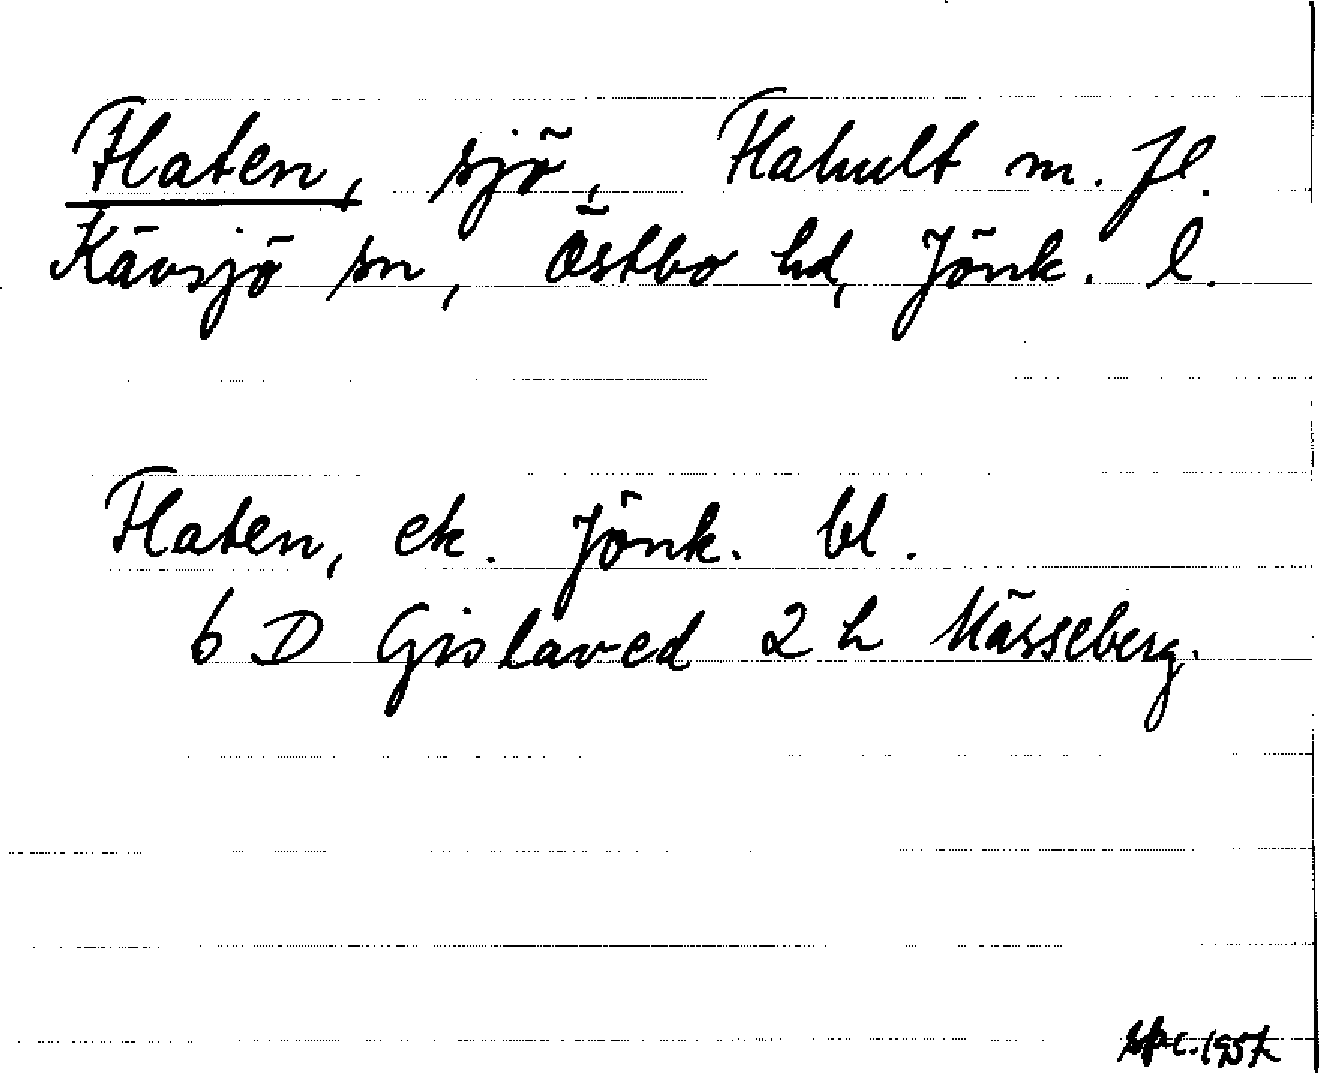 Flaten, sjö, Flahult m. fl.
Kävsjö sn, Östbo hd, Jönk. l.
Flaten, ek. Jönk. bl.
6 D Gislaved 2 h Mässeberg.